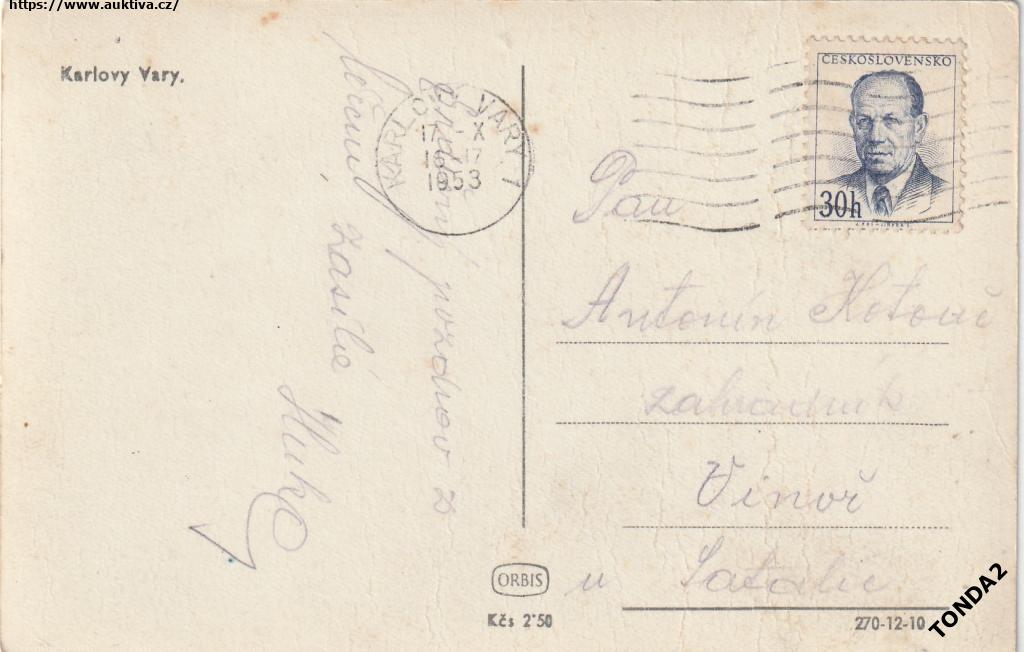 https://www.auktiva.cz/
Karlovy Vary.
KARLOVY VARY 1
17 -X
16-17
1953
ČESKOSLOVENSKO
30h
pozdrav z
zasílá
Pan
Antonín
zahradník
Vinoř
u Satalic
ORBIS
Kčs 2·50
270-12-10
TONDA2